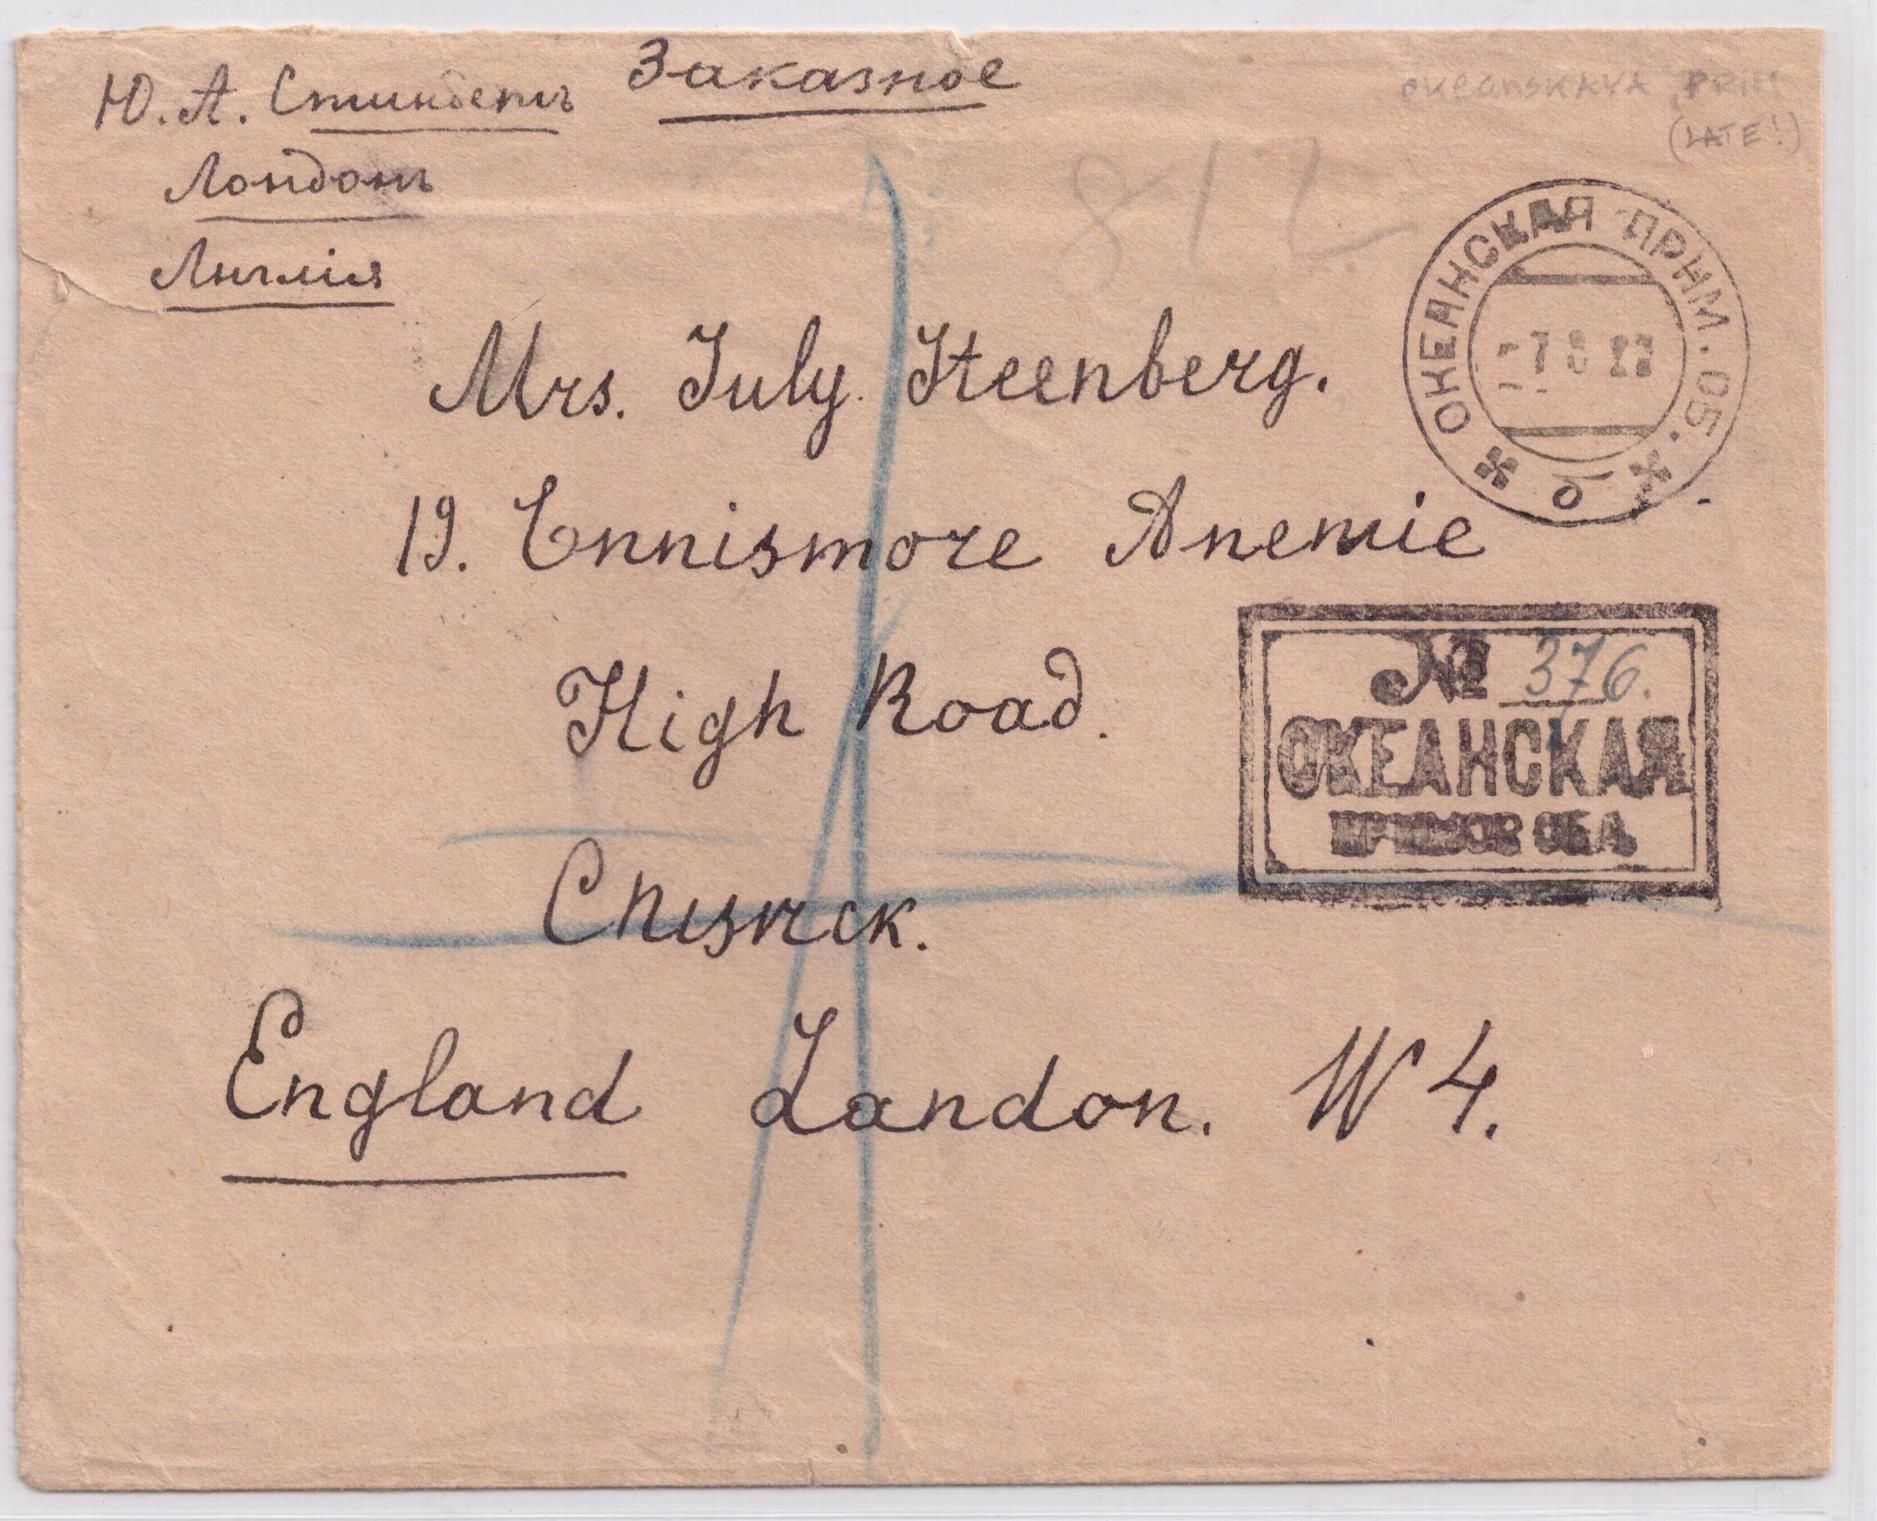 Заказное
Ю. А. Стинбергъ
Лондонъ
Англія
okeanskaya, PRIM
(LATE!)
812
ОКЕАНСКАЯ ПРИМ. ОБ. б
Mrs. July Steenberg.
19. Ennismore Anemie
High Road.
Chiswick.
England London. W 4.
№ 376.
ОКЕАНСКАЯ
ПРИМОР ОБЛ.